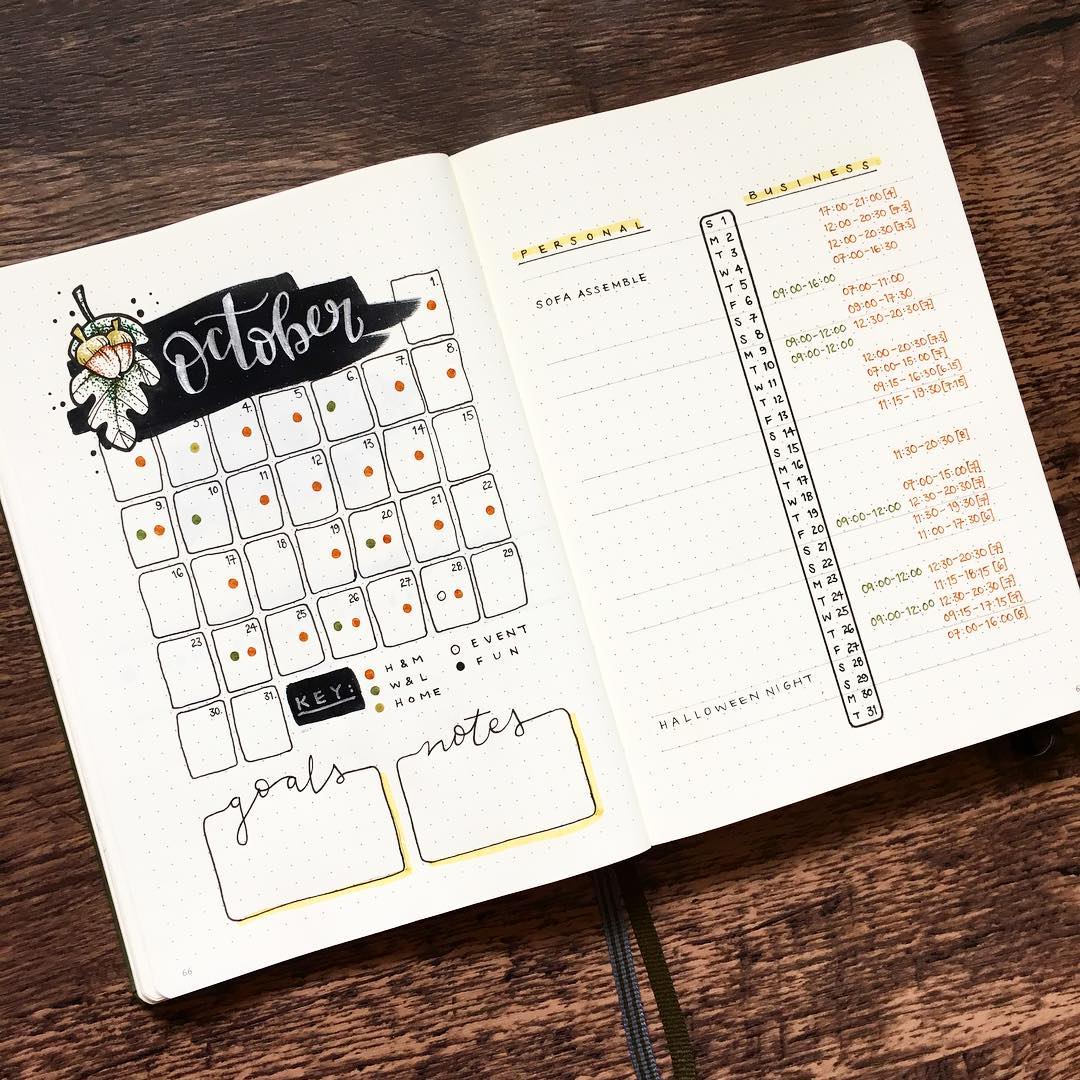 October
1.
3. 4. 5. 6. 7. 8.
9. 10 11 12 13 14 15
16 17 18 19 20 21 22
23 24 25 26 27. 28 29
30. 31.
KEY:
H&M
W&L
HOME
EVENT
FUN
goals
notes
66
PERSONAL
SOFA ASSEMBLE
HALLOWEEN NIGHT
S 1
M 2
T 3
W 4
T 5
F 6
S 7
S 8
M 9
T 10
W 11
T 12
F 13
S 14
S 15
M 16
T 17
W 18
T 19
F 20
S 21
S 22
M 23
T 24
W 25
T 26
F 27
S 28
S 29
M 30
T 31
BUSINESS
17:00-21:00 [4]
12:00-20:30 [7.3]
12:00-20:30 [7.3]
07:00-16:30
09:00-16:00
07:00-11:00
09:00-17:30
09:00-12:00 12:30-20:30 [7]
09:00-12:00
12:00-20:30 [7.3]
07:00-15:00 [7]
09:15-16:30 [6.15]
11:15-19:30 [7.15]
11:30-20:30 [8]
07:00-15:00 [7]
09:00-12:00 12:30-20:30 [7]
11:30-19:30 [7]
11:00-17:30 [6]
09:00-12:00 12:30-20:30 [7]
11:15-18:15 [6]
09:00-12:00 12:30-20:30 [7]
09:15-17:15 [7]
07:00-16:00 [8]